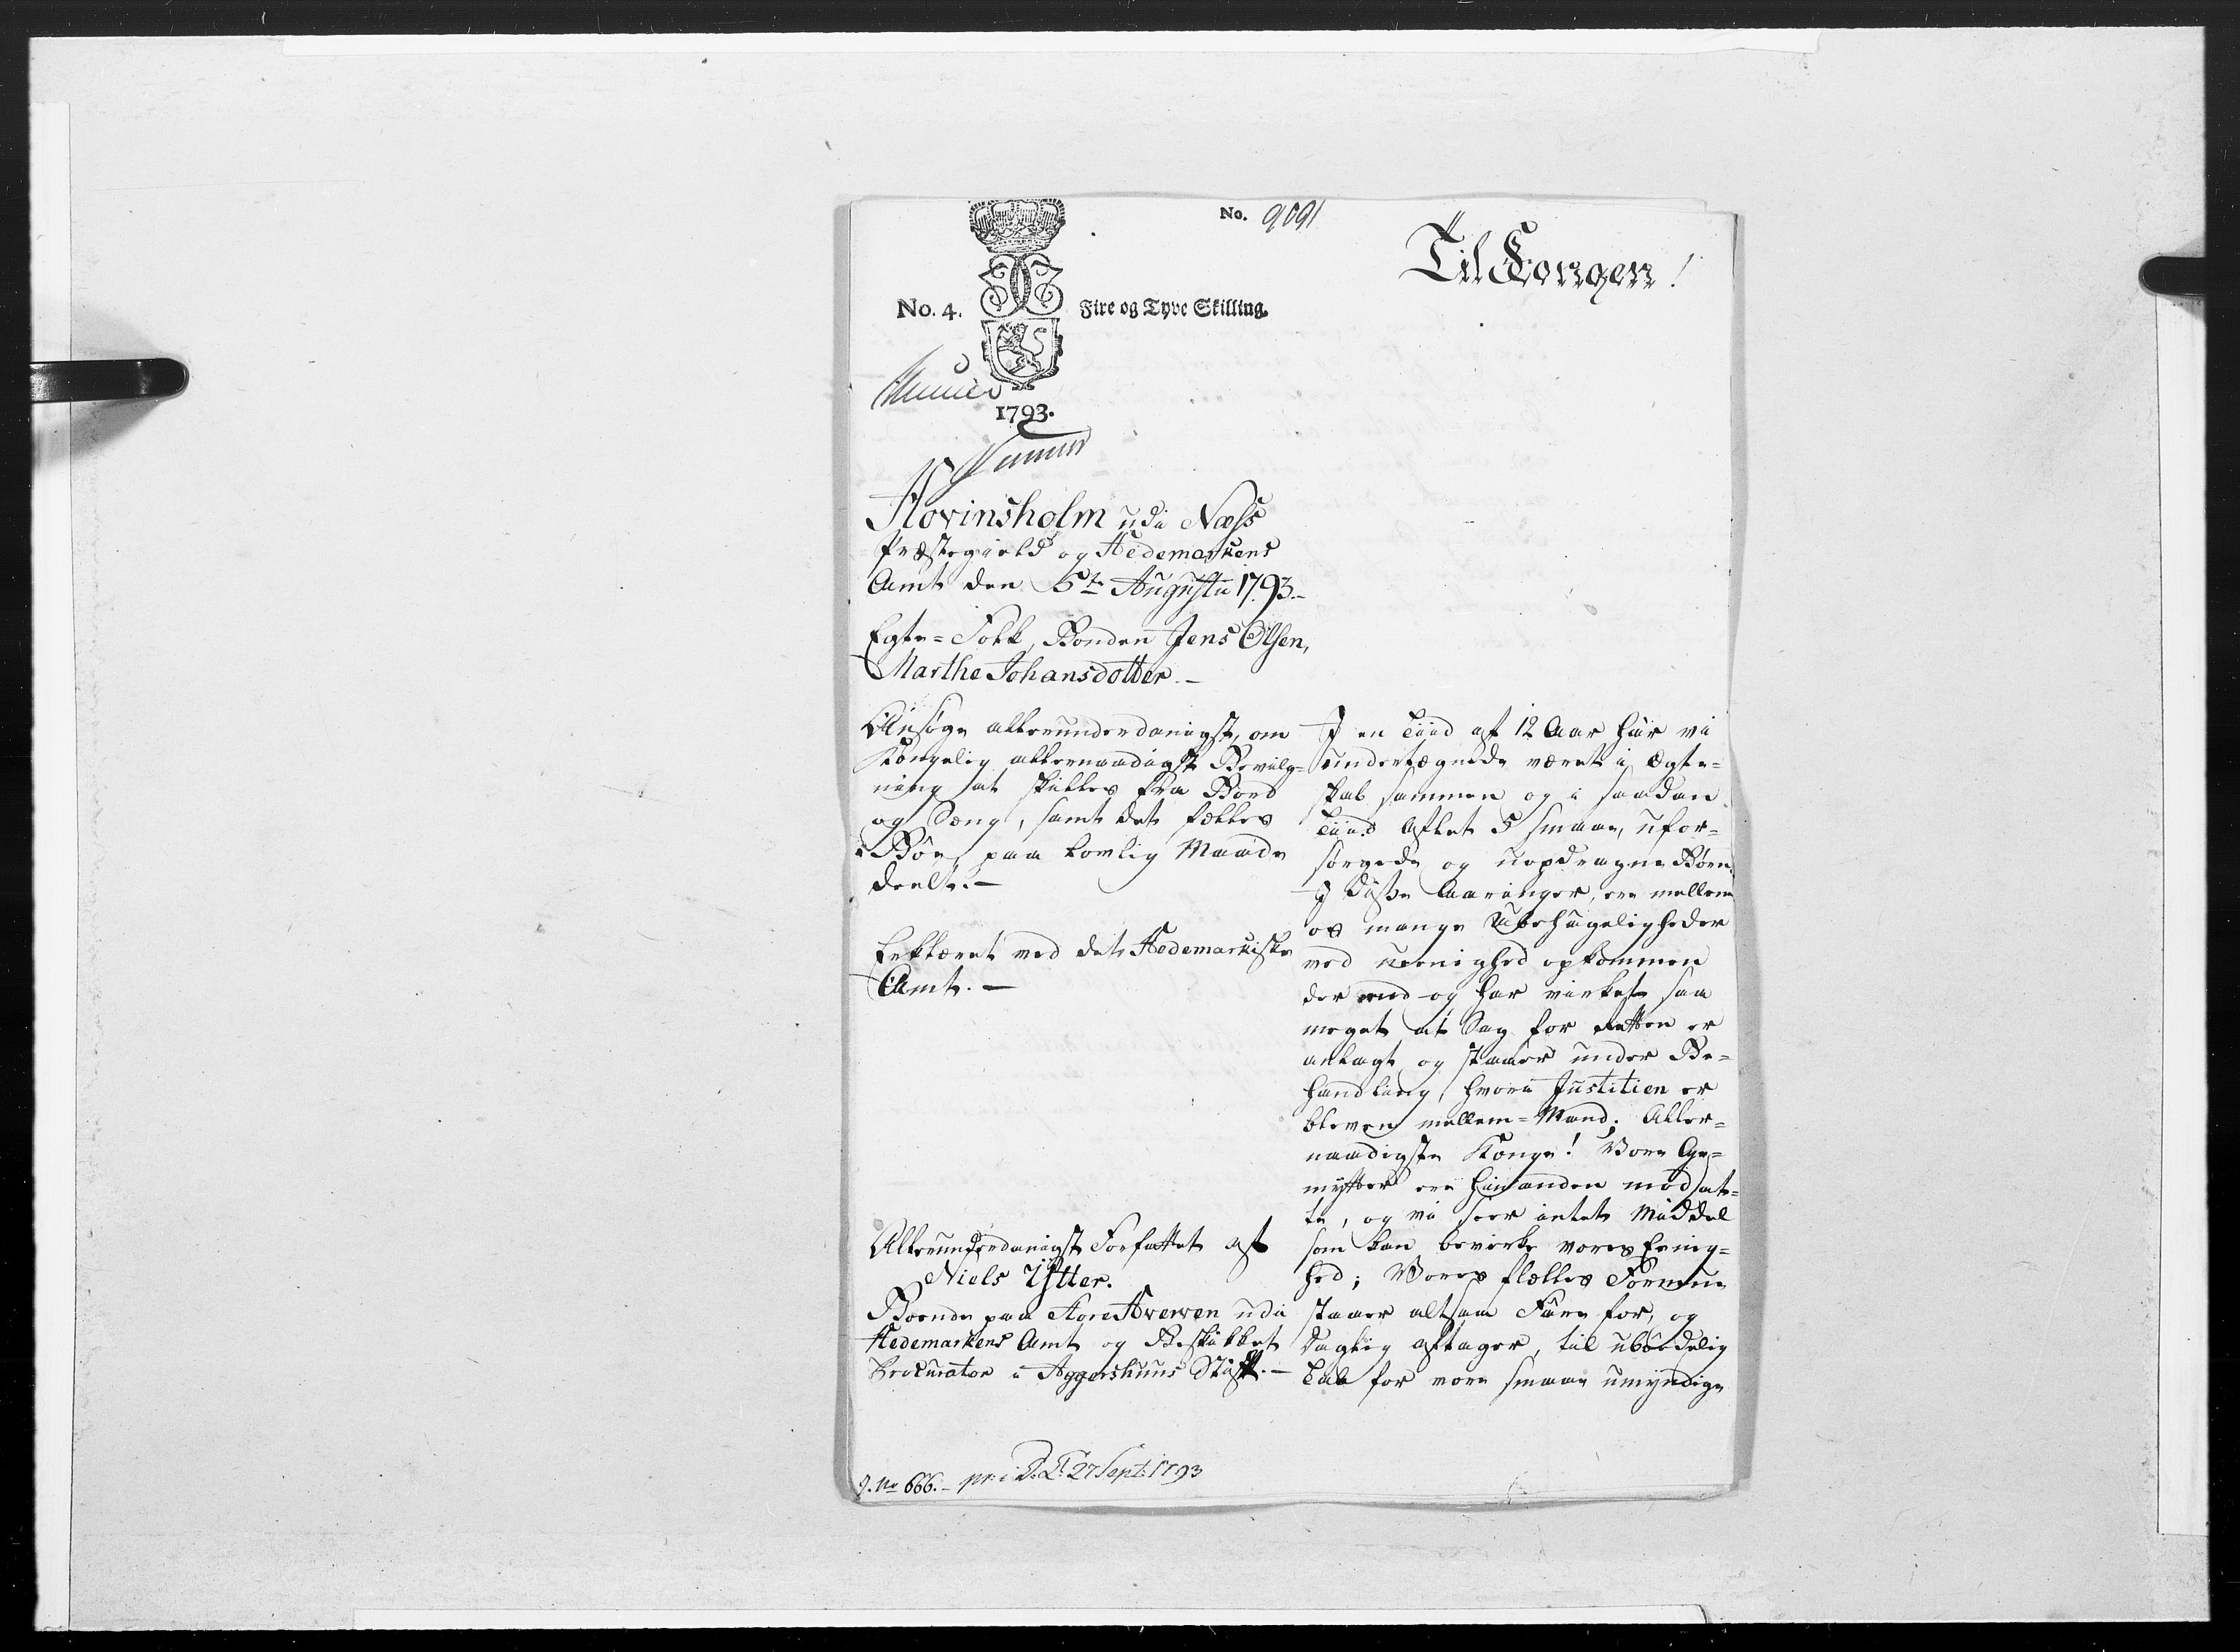 No. 9091
Til Kongen!
No. 4.
Fire og Tyve Skilling.
1793.
Hovinsholm udi Næss
Præstegield og Hedemarkens
Amt den 5te Augusti 1793.-
Egte-Folk, Bonden Jens Olsen,
Marthe Johansdotter.-
Ansøge allerunderdanigst, om
Kongelig allernaadigst Bevilg-
ning at skilles fra Bord
og Seng, samt det fælles
Boe, paa lovlig Maade
deelt.-
Erklæret ved det Hedemarkiske
Amt.-
Allerunderdanigst Forfattet af
Niels Ytter.
Boende paa Store Hverven udi
Hedemarkens Amt og Beskikket
Prokurator i Aggershuus Stift.-
I en Tiid af 12 Aar har vi
undertegnede været i Egte-
skab sammen og i saadan
Tiid aflet 5 smaae, ufor-
sørgede og uopdragne Børn.
I disse Aaringer, ere mellem
os mange Ubehageligheder
ved Ueenighed opkommen
der end og har virket saa
meget at Sag for Retten er
anlagt og staaer under Be-
handling, hvori Justitien er
bleven mellem-Mand. Aller-
naadigste Konge! Vore Ge-
mytter ere hinanden modsat-
te, og vi seer intet Middel
som kan bevirke vores Eenig-
hed; Vores fælles Formue
staaer altsaa Fare for, og
daglig aftager, til ubodelig
Tab for vore smaae umyndige
J. No 666.- pr. i D. C. 27 Sept: 1793